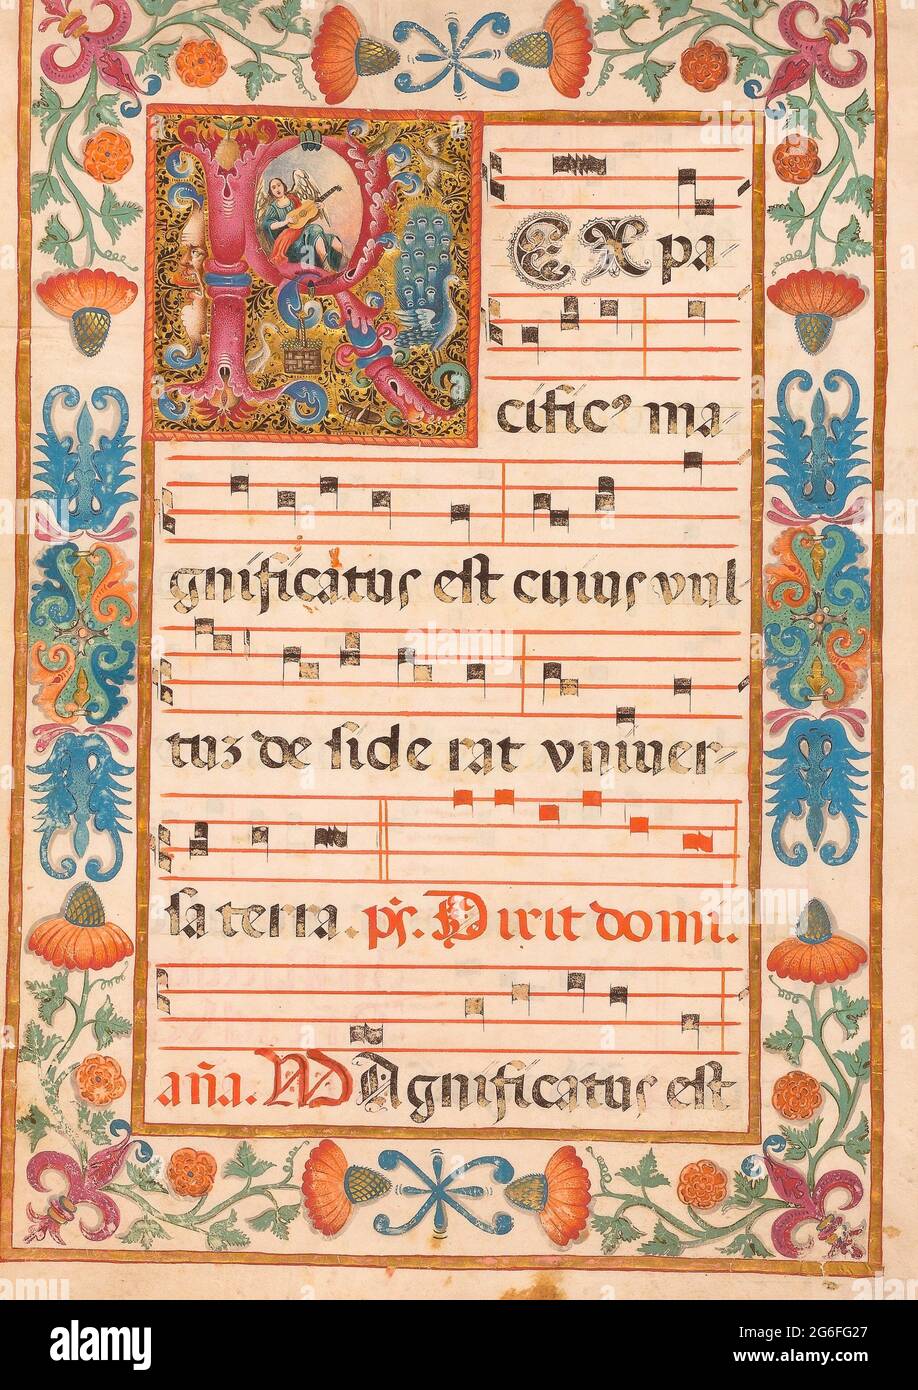 R EX pa
cificꝰ ma-
gnificatus est cuius vul
tuz de side rat vniuer-
sa terra. ps. Dixit domi.
aña. M Agnificatus est
alamy
Image ID: 2G6FG27
www.alamy.com